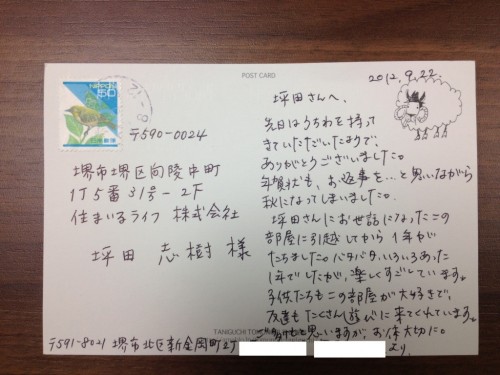 POST CARD
NIPPON
50
日本郵便
〒590-0024
堺市堺区向陵中町
1丁5番31号-2F
住まいるライフ 株式会社
坪田 志樹 様
2012.9.22
坪田さんへ。
先日はうちわを持って
きていただいたようで、
ありがとうございました。
年賀状も、お返事を…と思いながら
秋になってしまいました。
坪田さんにお世話になったこの
部屋に引越してから1年が
たちました。バタバタいろいろあった
1年でしたが、楽しくすごしています。
子供たちもこの部屋が大好きで、
友達もたくさん遊びに来てくれています。
と思いますが、お体大切に。
より。
〒591-8021 堺市北区新金岡町2丁